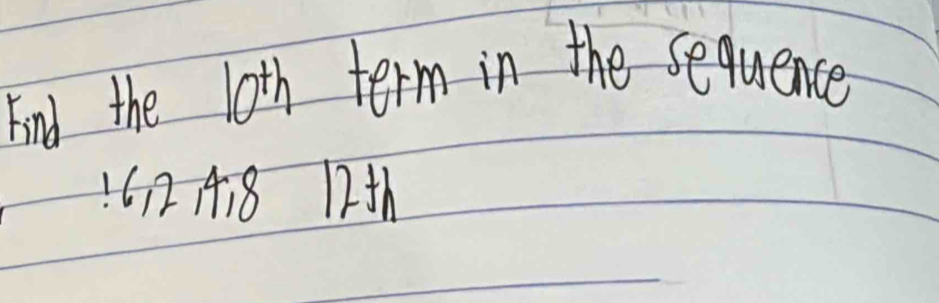 Find the 10th term in the sequence
!6,2,4,8 12th